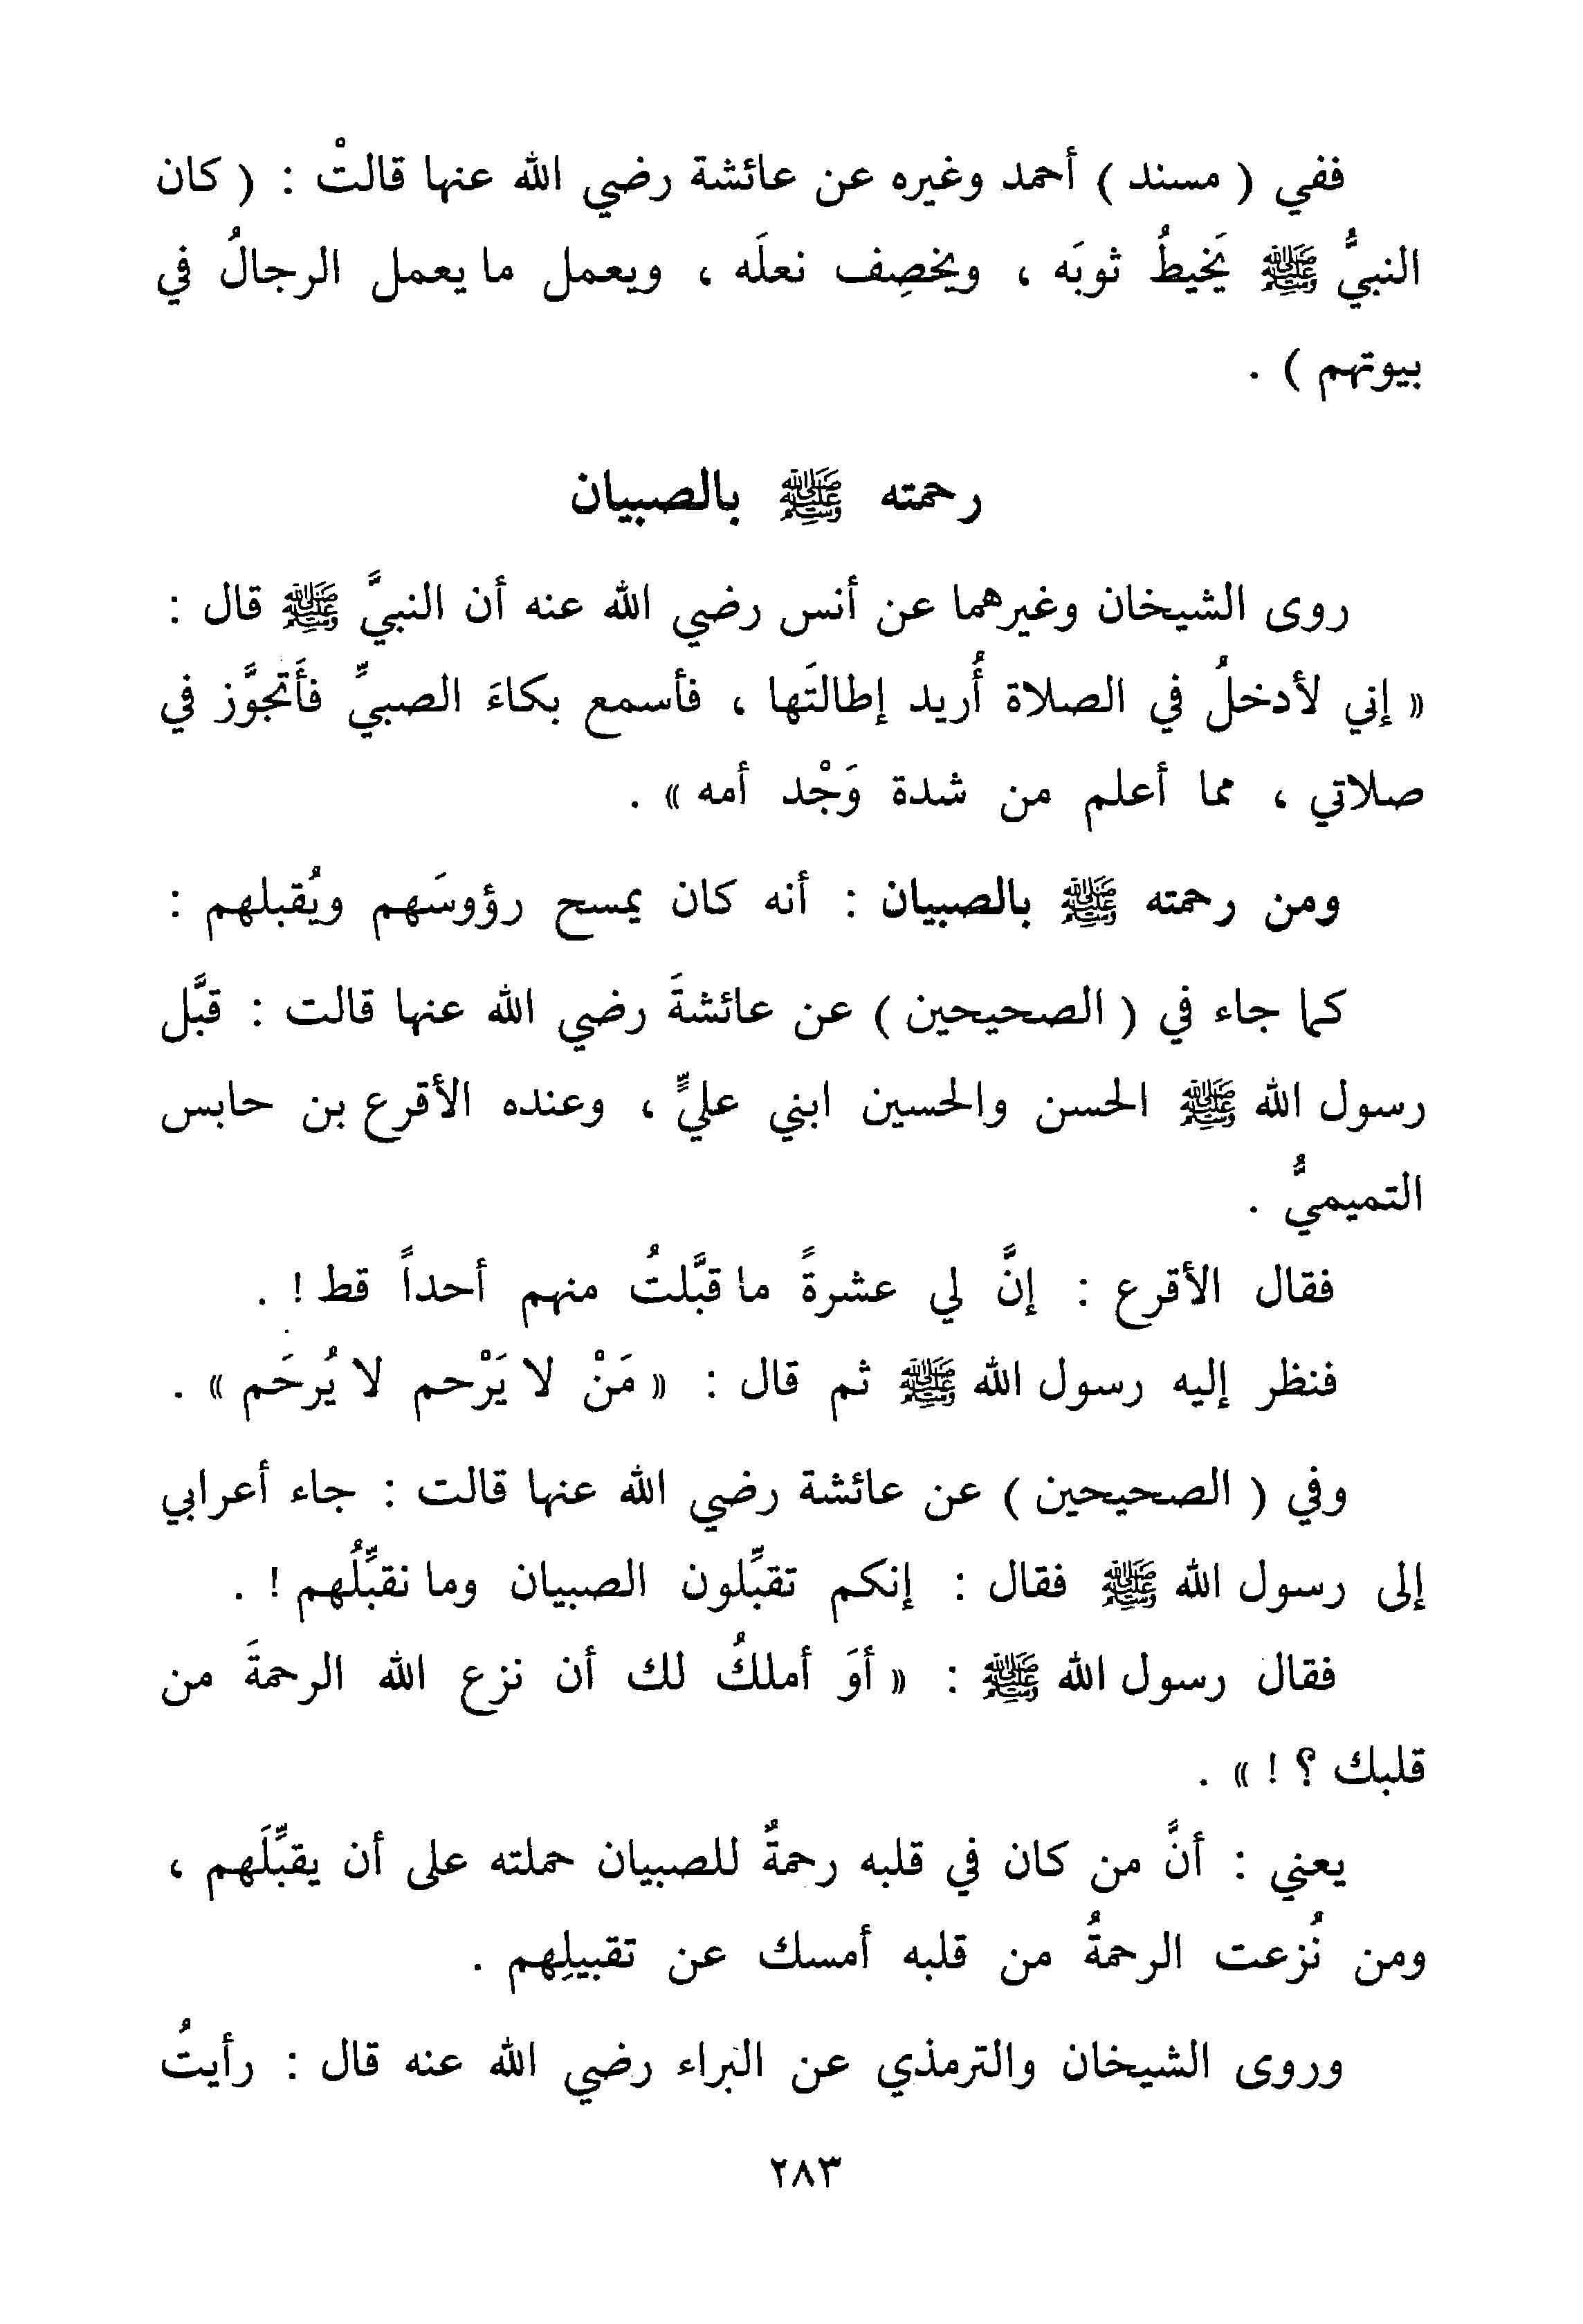 ففي ( مسند ) أحمد وغيره عن عائشة رضي الله عنها قالتْ : ( كان
النبيُّ ﷺ يَخيطُ ثوبَه ، ويخصِف نعلَه ، ويعمل ما يعمل الرجالُ في
بيوتهم ) .
رحمته ﷺ بالصبيان
روى الشيخان وغيرهما عن أنس رضي الله عنه أن النبيَّ ﷺ قال :
« إني لأدخلُ في الصلاة أُريد إطالتَها ، فأسمع بكاءَ الصبيِّ فأَتجوَّز في
صلاتي ، مما أعلم من شدة وَجْد أمه » .
ومن رحمته ﷺ بالصبيان : أنه كان يمسح رؤوسَهم ويُقبلهم :
كما جاء في ( الصحيحين ) عن عائشةَ رضي الله عنها قالت : قبَّل
رسول الله ﷺ الحسن والحسين ابني عليٍّ ، وعنده الأقرع بن حابس
التميميُّ .
فقال الأقرع : إنَّ لي عشرةً ما قبَّلتُ منهم أحداً قط ! .
فنظر إليه رسول الله ﷺ ثم قال : « مَنْ لا يَرْحم لا يُرحَم » .
وفي ( الصحيحين ) عن عائشة رضي الله عنها قالت : جاء أعرابي
إلى رسول الله ﷺ فقال : إنكم تقبِّلون الصبيان وما نقبِّلُهم ! .
فقال رسول الله ﷺ : « أوَ أملكُ لك أن نزع الله الرحمةَ من
قلبك ؟ ! » .
يعني : أنَّ من كان في قلبه رحمةٌ للصبيان حملته على أن يقبِّلَهم ،
ومن نُزعت الرحمةُ من قلبه أمسك عن تقبيلِهم .
وروى الشيخان والترمذي عن البراء رضي الله عنه قال : رأيتُ
٢٨٣